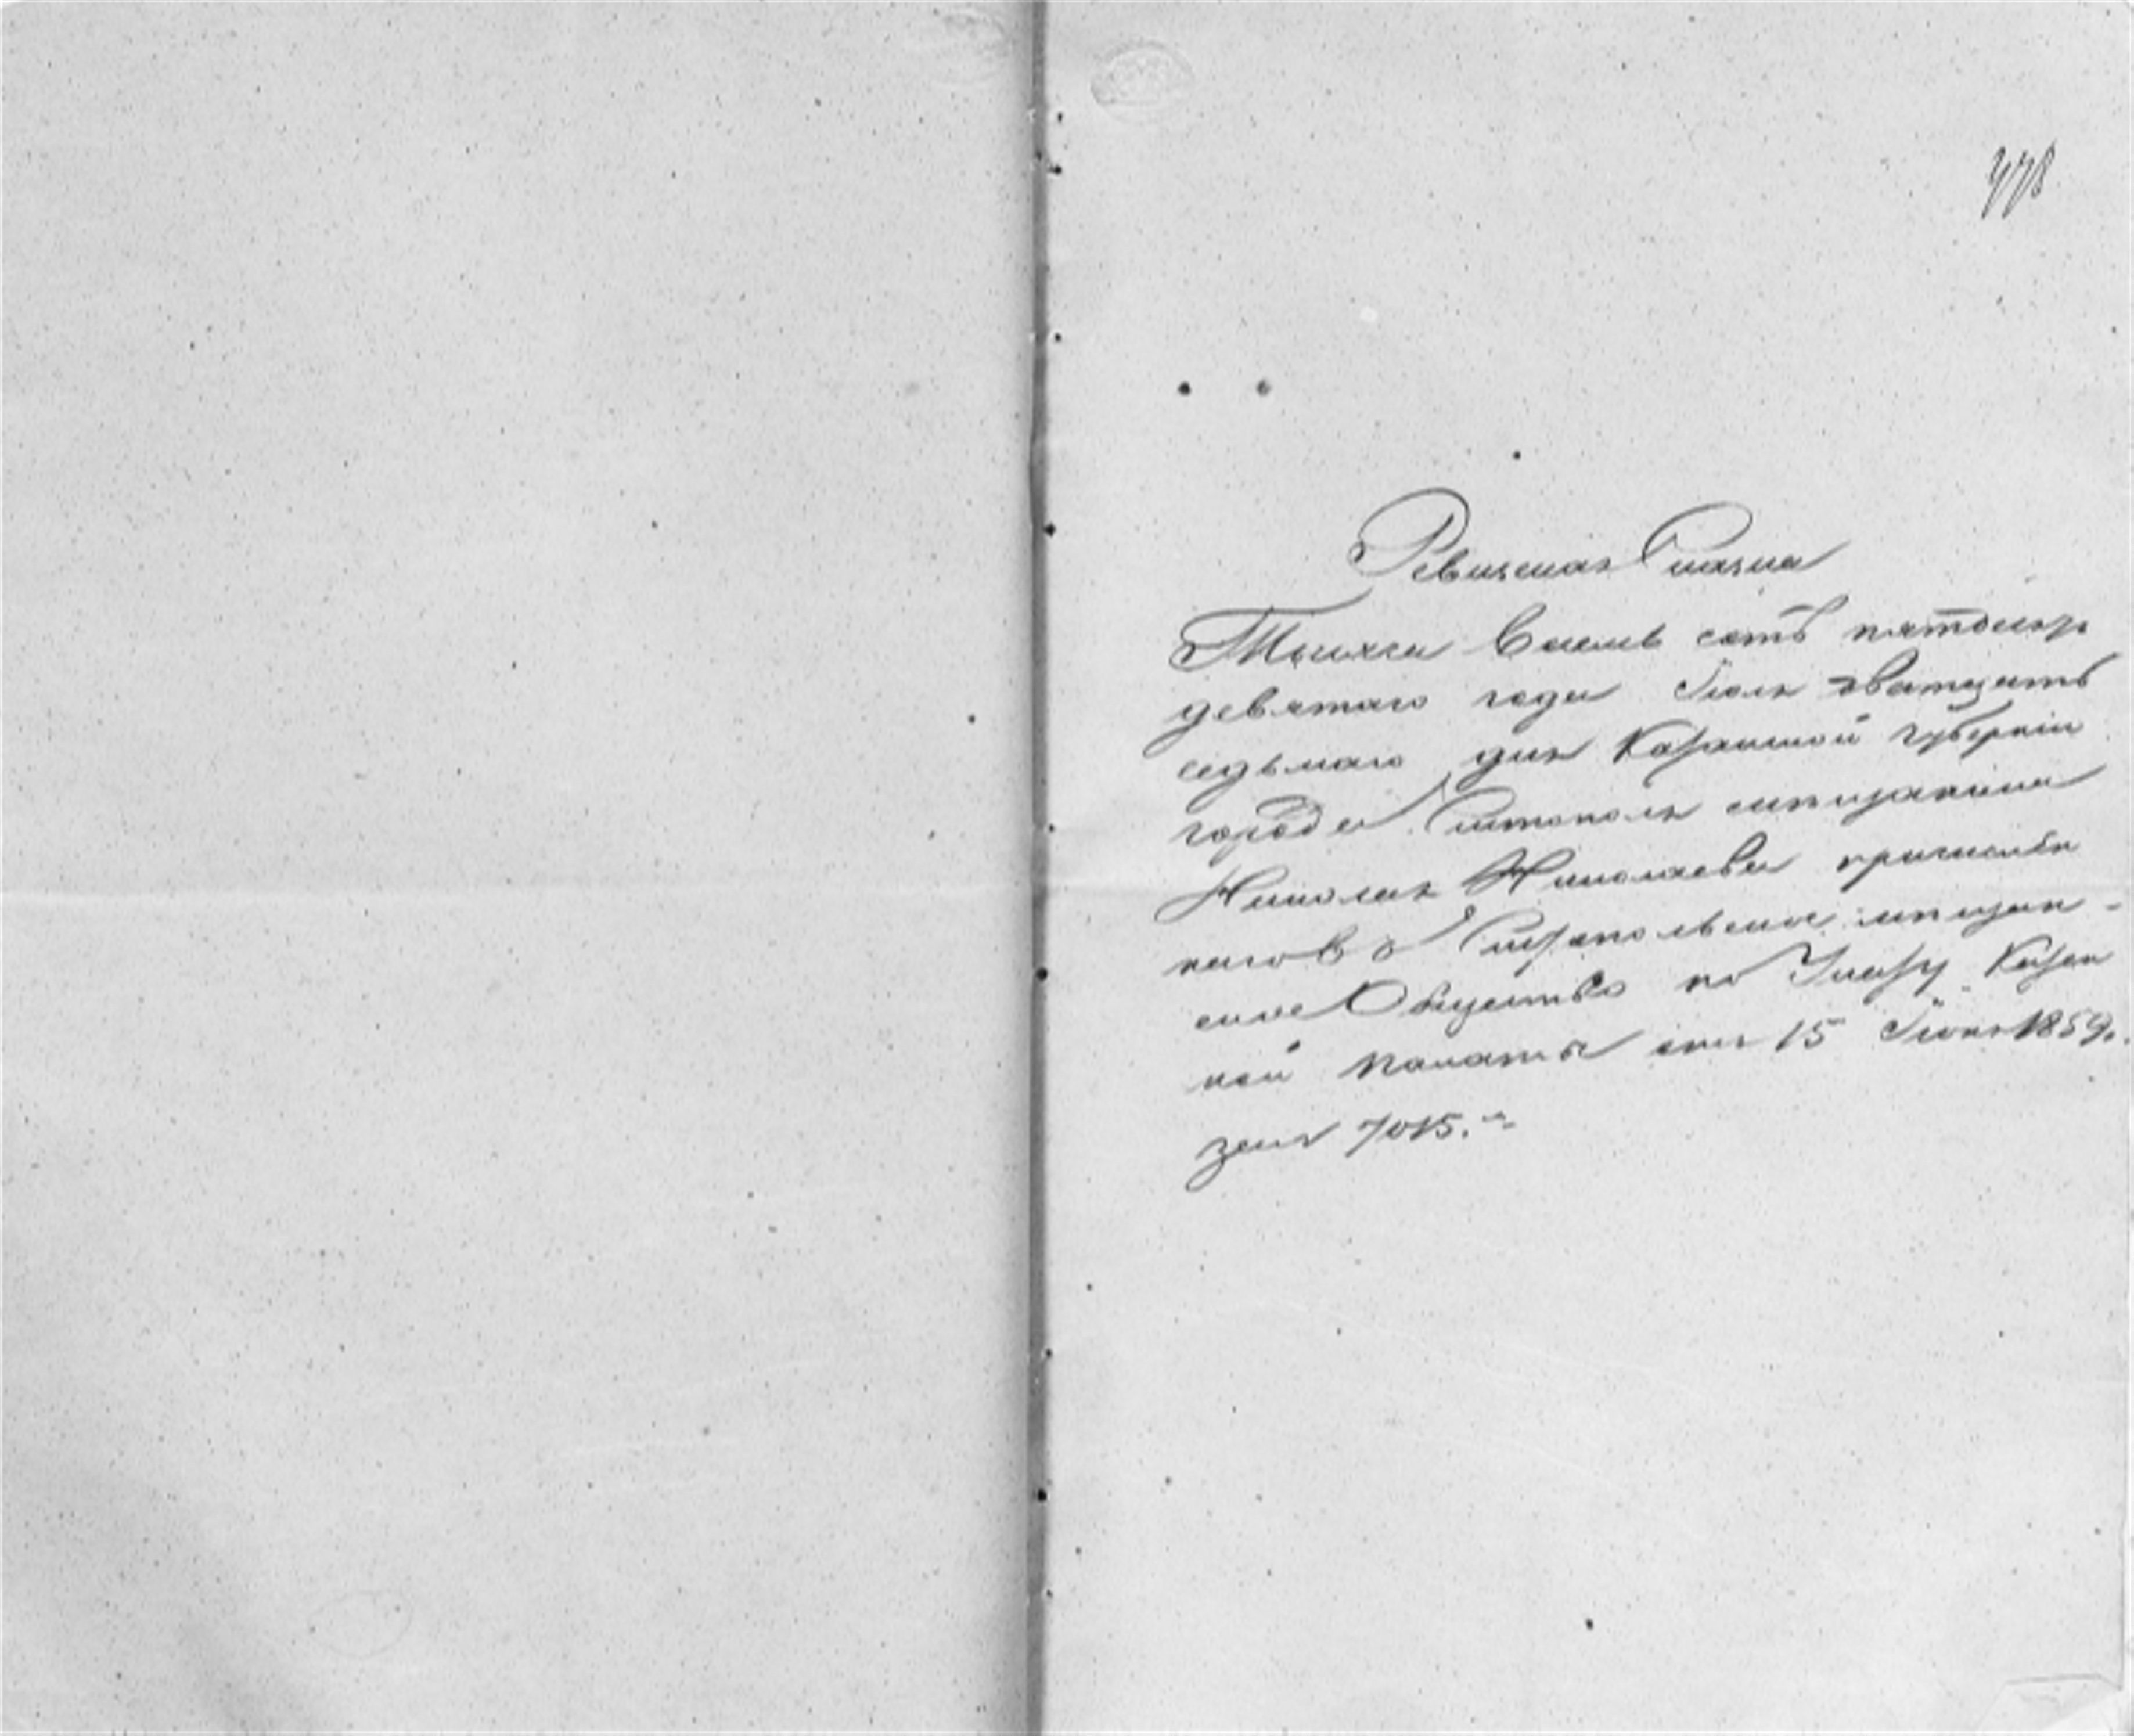 778
Ревизская Сказка
Тысяча восемь сотъ пятдесяр
девятаго года Іюля дватцать
седьмаго дня Казанской губерніи
города Чистополя мещанина
Николая Николаева причислен
наго въ Чистопольское мещан-
ское Общество по Указу Казен
ной палаты отъ 15 Іюня 1859.
за № 7015.